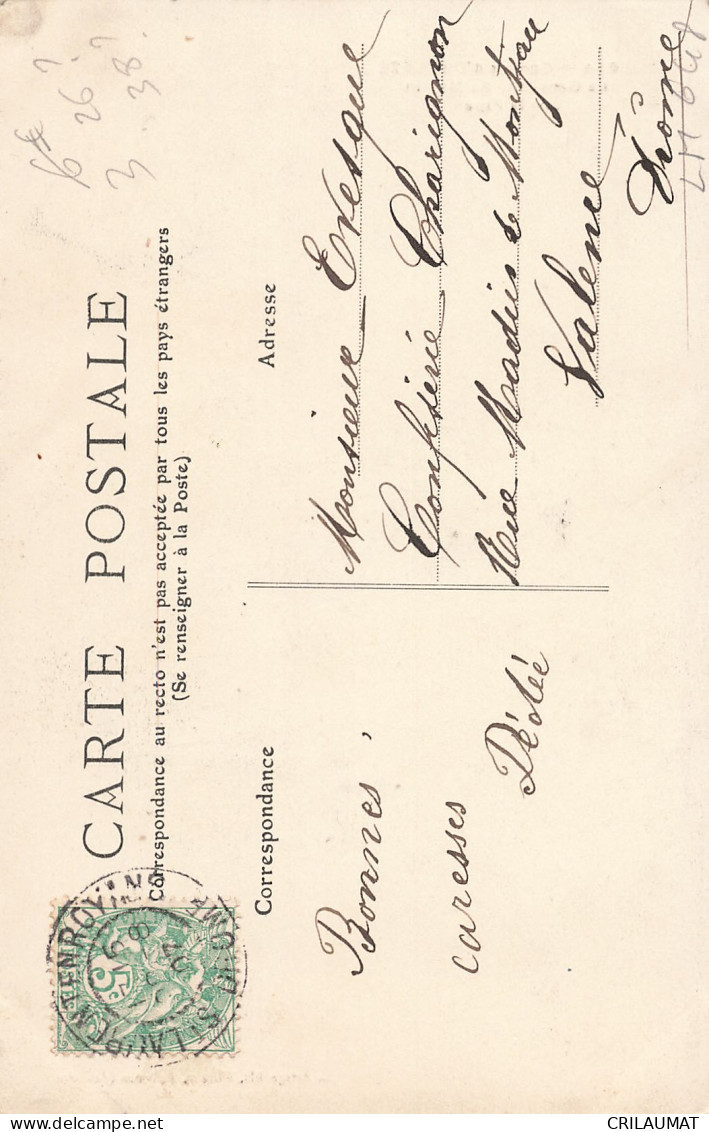 CARTE POSTALE
Correspondance au recto n'est pas acceptée par tous les pays étrangers
(Se renseigner à la Poste)
Correspondance
Adresse
Bonnes,
caresses
Monsieur Evesque
Confiserie Charignon
Rue Madier de Montjau
Valence
Drôme
5c
26?
3 38?
CRILAUMAT